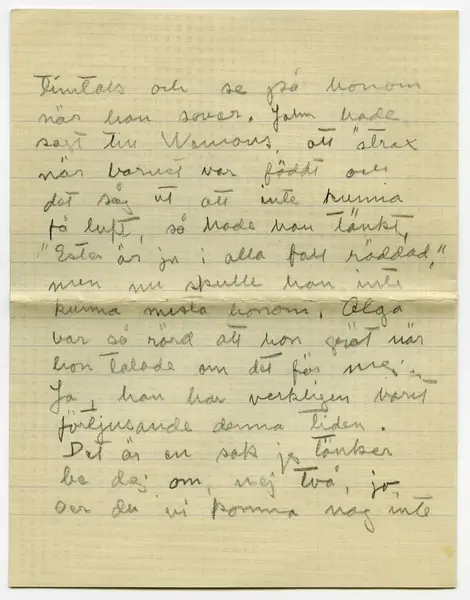 timtals och se på honom
när han sover. John hade
sagt till Wemans, att "strax
när barnet var född och
det såg ut att inte kunna
få luft, så hade han tänkt,
"Ester är ju i alla fall räddad,"
men nu skulle han inte
kunna mista honom. Olga
var så rörd att hon grät när
hon talade om det för mej.
Ja, han har verkligen varit
förtjusande denna tiden.
Det är en sak jag tänker
be dej om, nej två, jo,
ser du vi komma nog inte